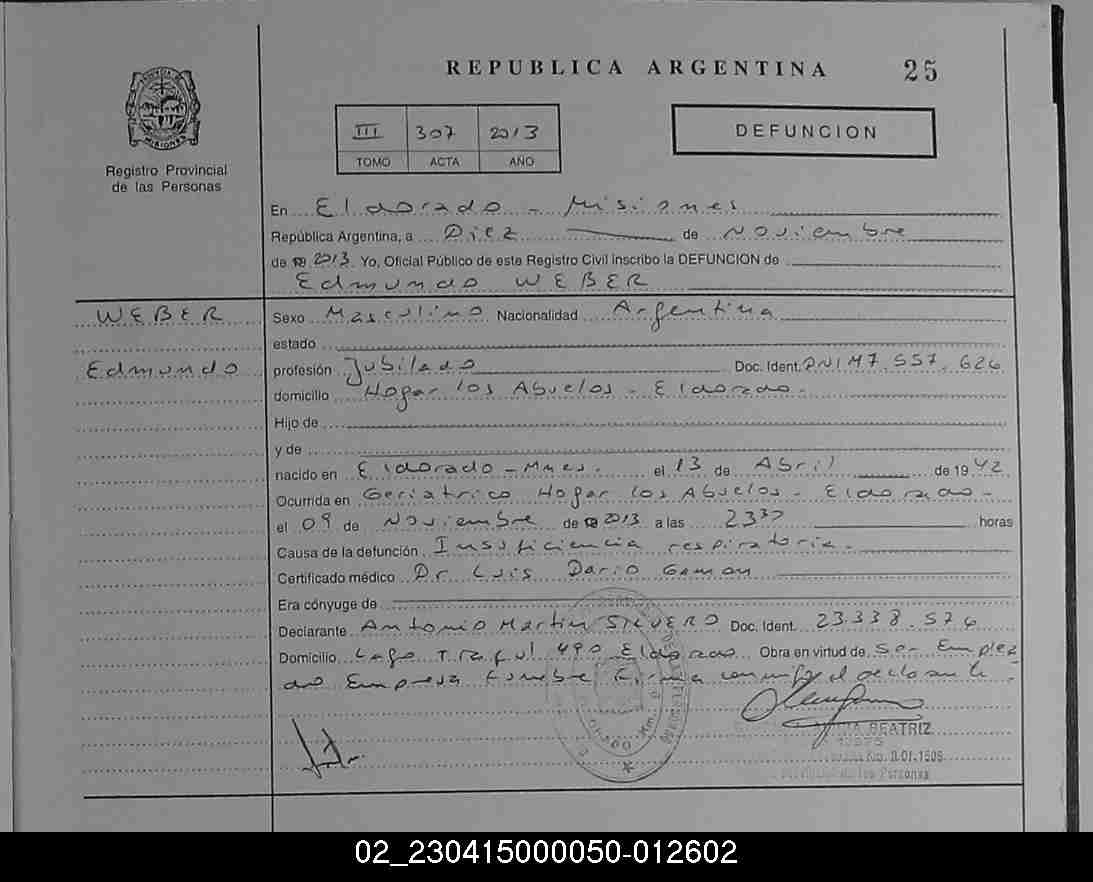 REPUBLICA ARGENTINA 25
PROVINCIA DE
MISIONES
Registro Provincial
de las Personas
III 307 2013
TOMO ACTA AÑO
DEFUNCION
En Eldorado - Misiones
República Argentina, a Diez de Noviembre
de 2013. Yo, Oficial Público de este Registro Civil inscribo la DEFUNCION de
Edmundo WEBER
WEBER
Edmundo
Sexo Masculino Nacionalidad Argentina
estado
profesión Jubilado Doc. Ident. DNI M7.557.626
domicilio Hogar los Abuelos - Eldorado.
Hijo de
y de
nacido en Eldorado - Mnes. el 13 de Abril de 1942.
Ocurrida en Geriatrico Hogar los Abuelos - Eldorado -
el 09 de Noviembre de 2013 a las 2330 horas
Causa de la defunción Insuficiencia respiratoria.
Certificado médico Dr Luis Dario
Era cónyuge de
Declarante Antonio Martin SILVERO Doc. Ident. 23.338.576
Domicilio Lago 490 Eldorado Obra en virtud de Ser Emplea
do Empresa Funebre Firma conmigo el declarante.
BEATRIZ
Km. 9 Of. 1506
de las Personas
02_230415000050-012602